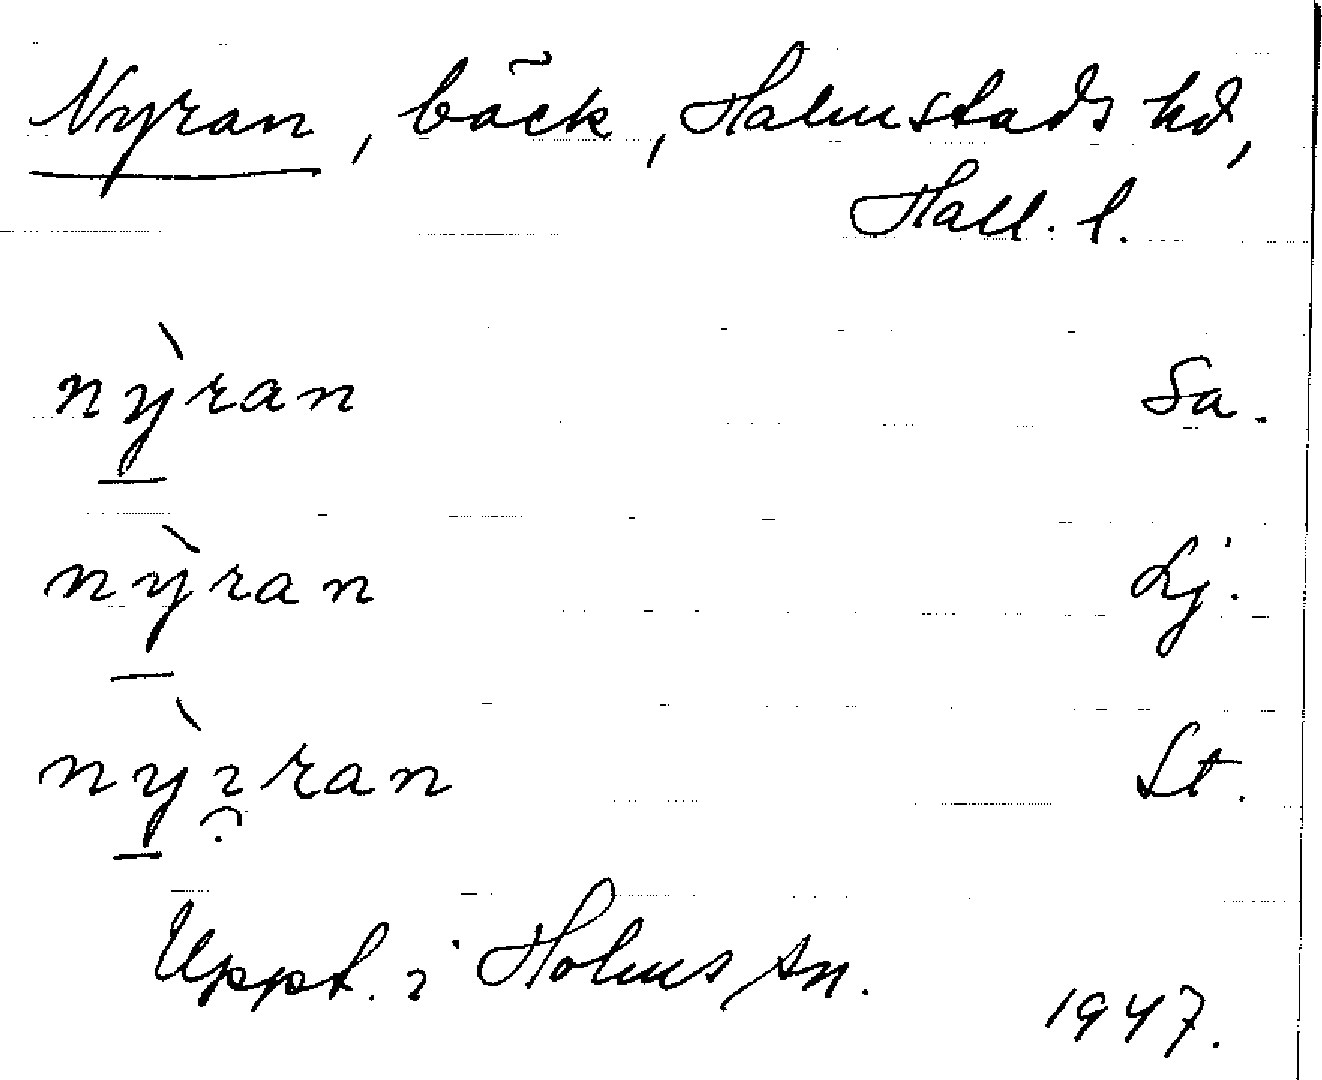 Nyran, bäck, Halmstads hd,
Hall. l.
nỳran Sa.
nỳran Lj.
nỳɿran St.
Uppt. i Holms sn.
1947.